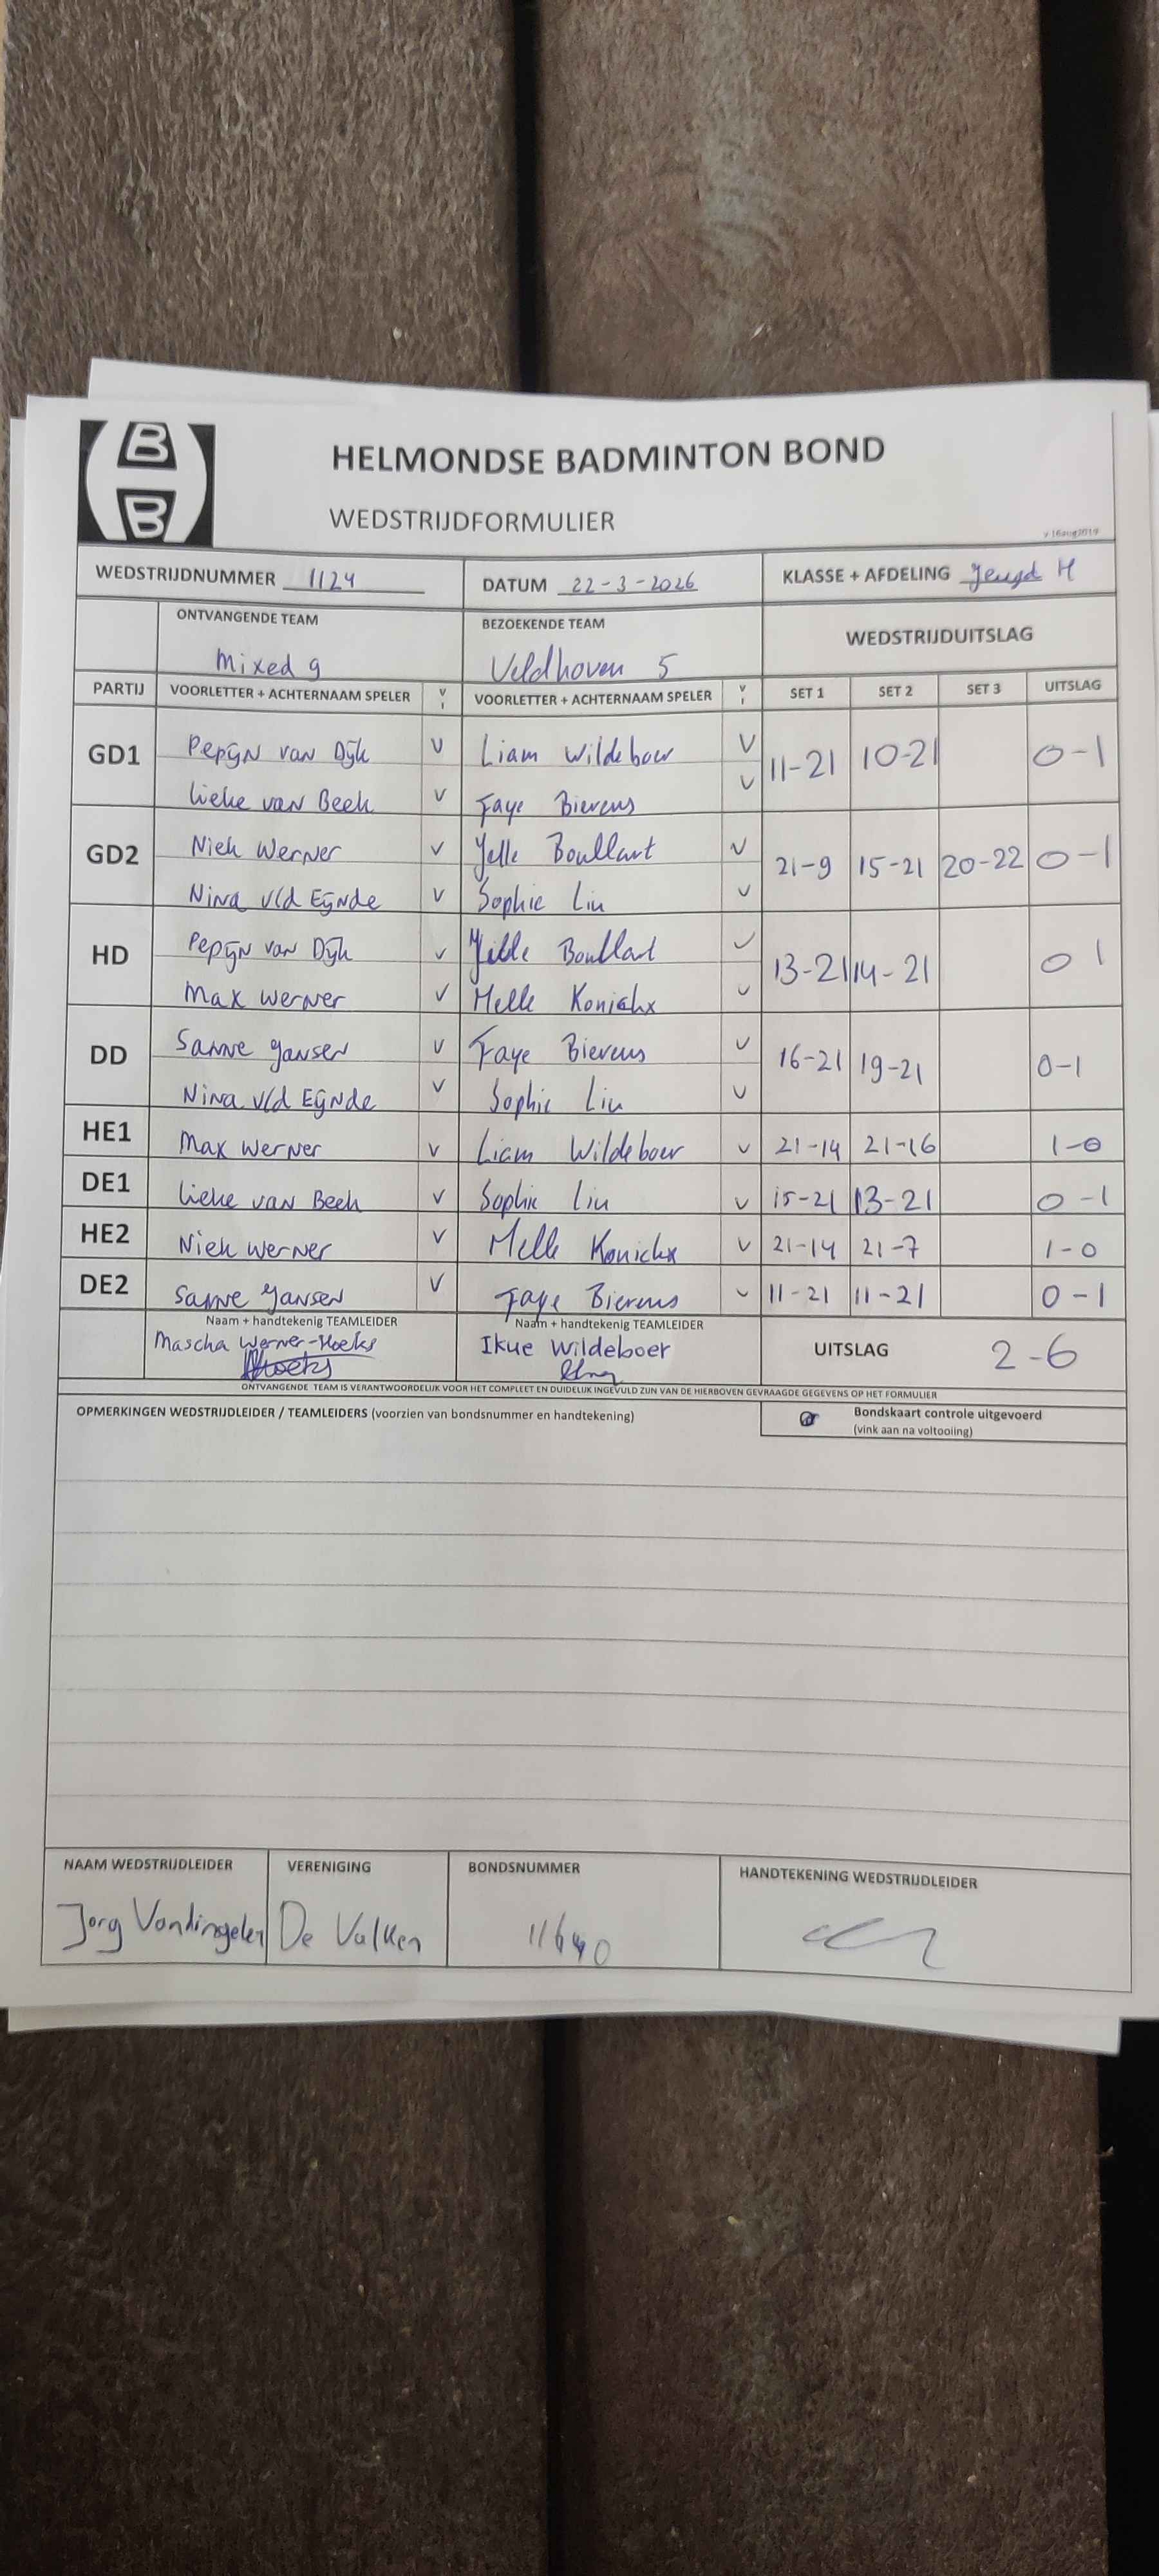 HELMONDSE BADMINTON BOND
WEDSTRIJDFORMULIER
v 16aug2019
WEDSTRIJDNUMMER 1124 DATUM 22-3-2026 KLASSE + AFDELING Jeugd H
ONTVANGENDE TEAM BEZOEKENDE TEAM WEDSTRIJDUITSLAG
Mixed 9 Veldhoven 5
PARTIJ VOORLETTER + ACHTERNAAM SPELER V VOORLETTER + ACHTERNAAM SPELER V SET 1 SET 2 SET 3 UITSLAG
GD1 Pepijn van Dijk V Liam Wildeboer V 11-21 10-21 0-1
Lieke van Beek V Faye Bierens V
GD2 Niek Werner V Yelle Boullart V 21-9 15-21 20-22 0-1
Nina v/d Eijnde V Sophie Liu V
HD Pepijn van Dijk V Boullart V 13-21 14-21 0 1
Max Werner V Melle Konickx V
DD Sanne Jansen V Faye Bierens V 16-21 19-21 0-1
Nina v/d Eijnde V Sophie Liu V
HE1 Max Werner V Liam Wildeboer V 21-14 21-16 1-0
DE1 Lieke van Beek V Sophie Liu V 15-21 13-21 0-1
HE2 Niek Werner V Melle Konickx V 21-14 21-7 1-0
DE2 Sanne Jansen V Faye Bierens V 11-21 11-21 0-1
Naam + handtekenig TEAMLEIDER Naam + handtekenig TEAMLEIDER
Mascha Werner-Hoeks Ikue Wildeboer UITSLAG 2-6
Hoeks
ONTVANGENDE TEAM IS VERANTWOORDELIJK VOOR HET COMPLEET EN DUIDELIJK INGEVULD ZIJN VAN DE HIERBOVEN GEVRAAGDE GEGEVENS OP HET FORMULIER
OPMERKINGEN WEDSTRIJDLEIDER / TEAMLEIDERS (voorzien van bondsnummer en handtekening) Bondskaart controle uitgevoerd
(vink aan na voltooiing)
NAAM WEDSTRIJDLEIDER VERENIGING BONDSNUMMER HANDTEKENING WEDSTRIJDLEIDER
Jorg De Valken 11640